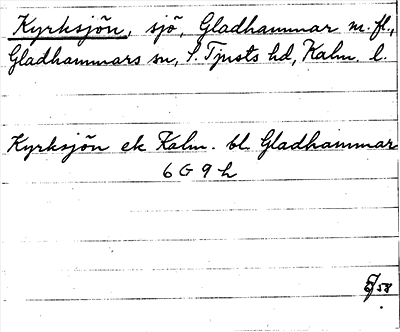 Kyrksjön, sjö, Gladhammar m. fl.,
Gladhammars sn, S. Tjusts hd, Kalm. l.
Kyrksjön ek Kalm. bl. Gladhammar
6 G 9 h